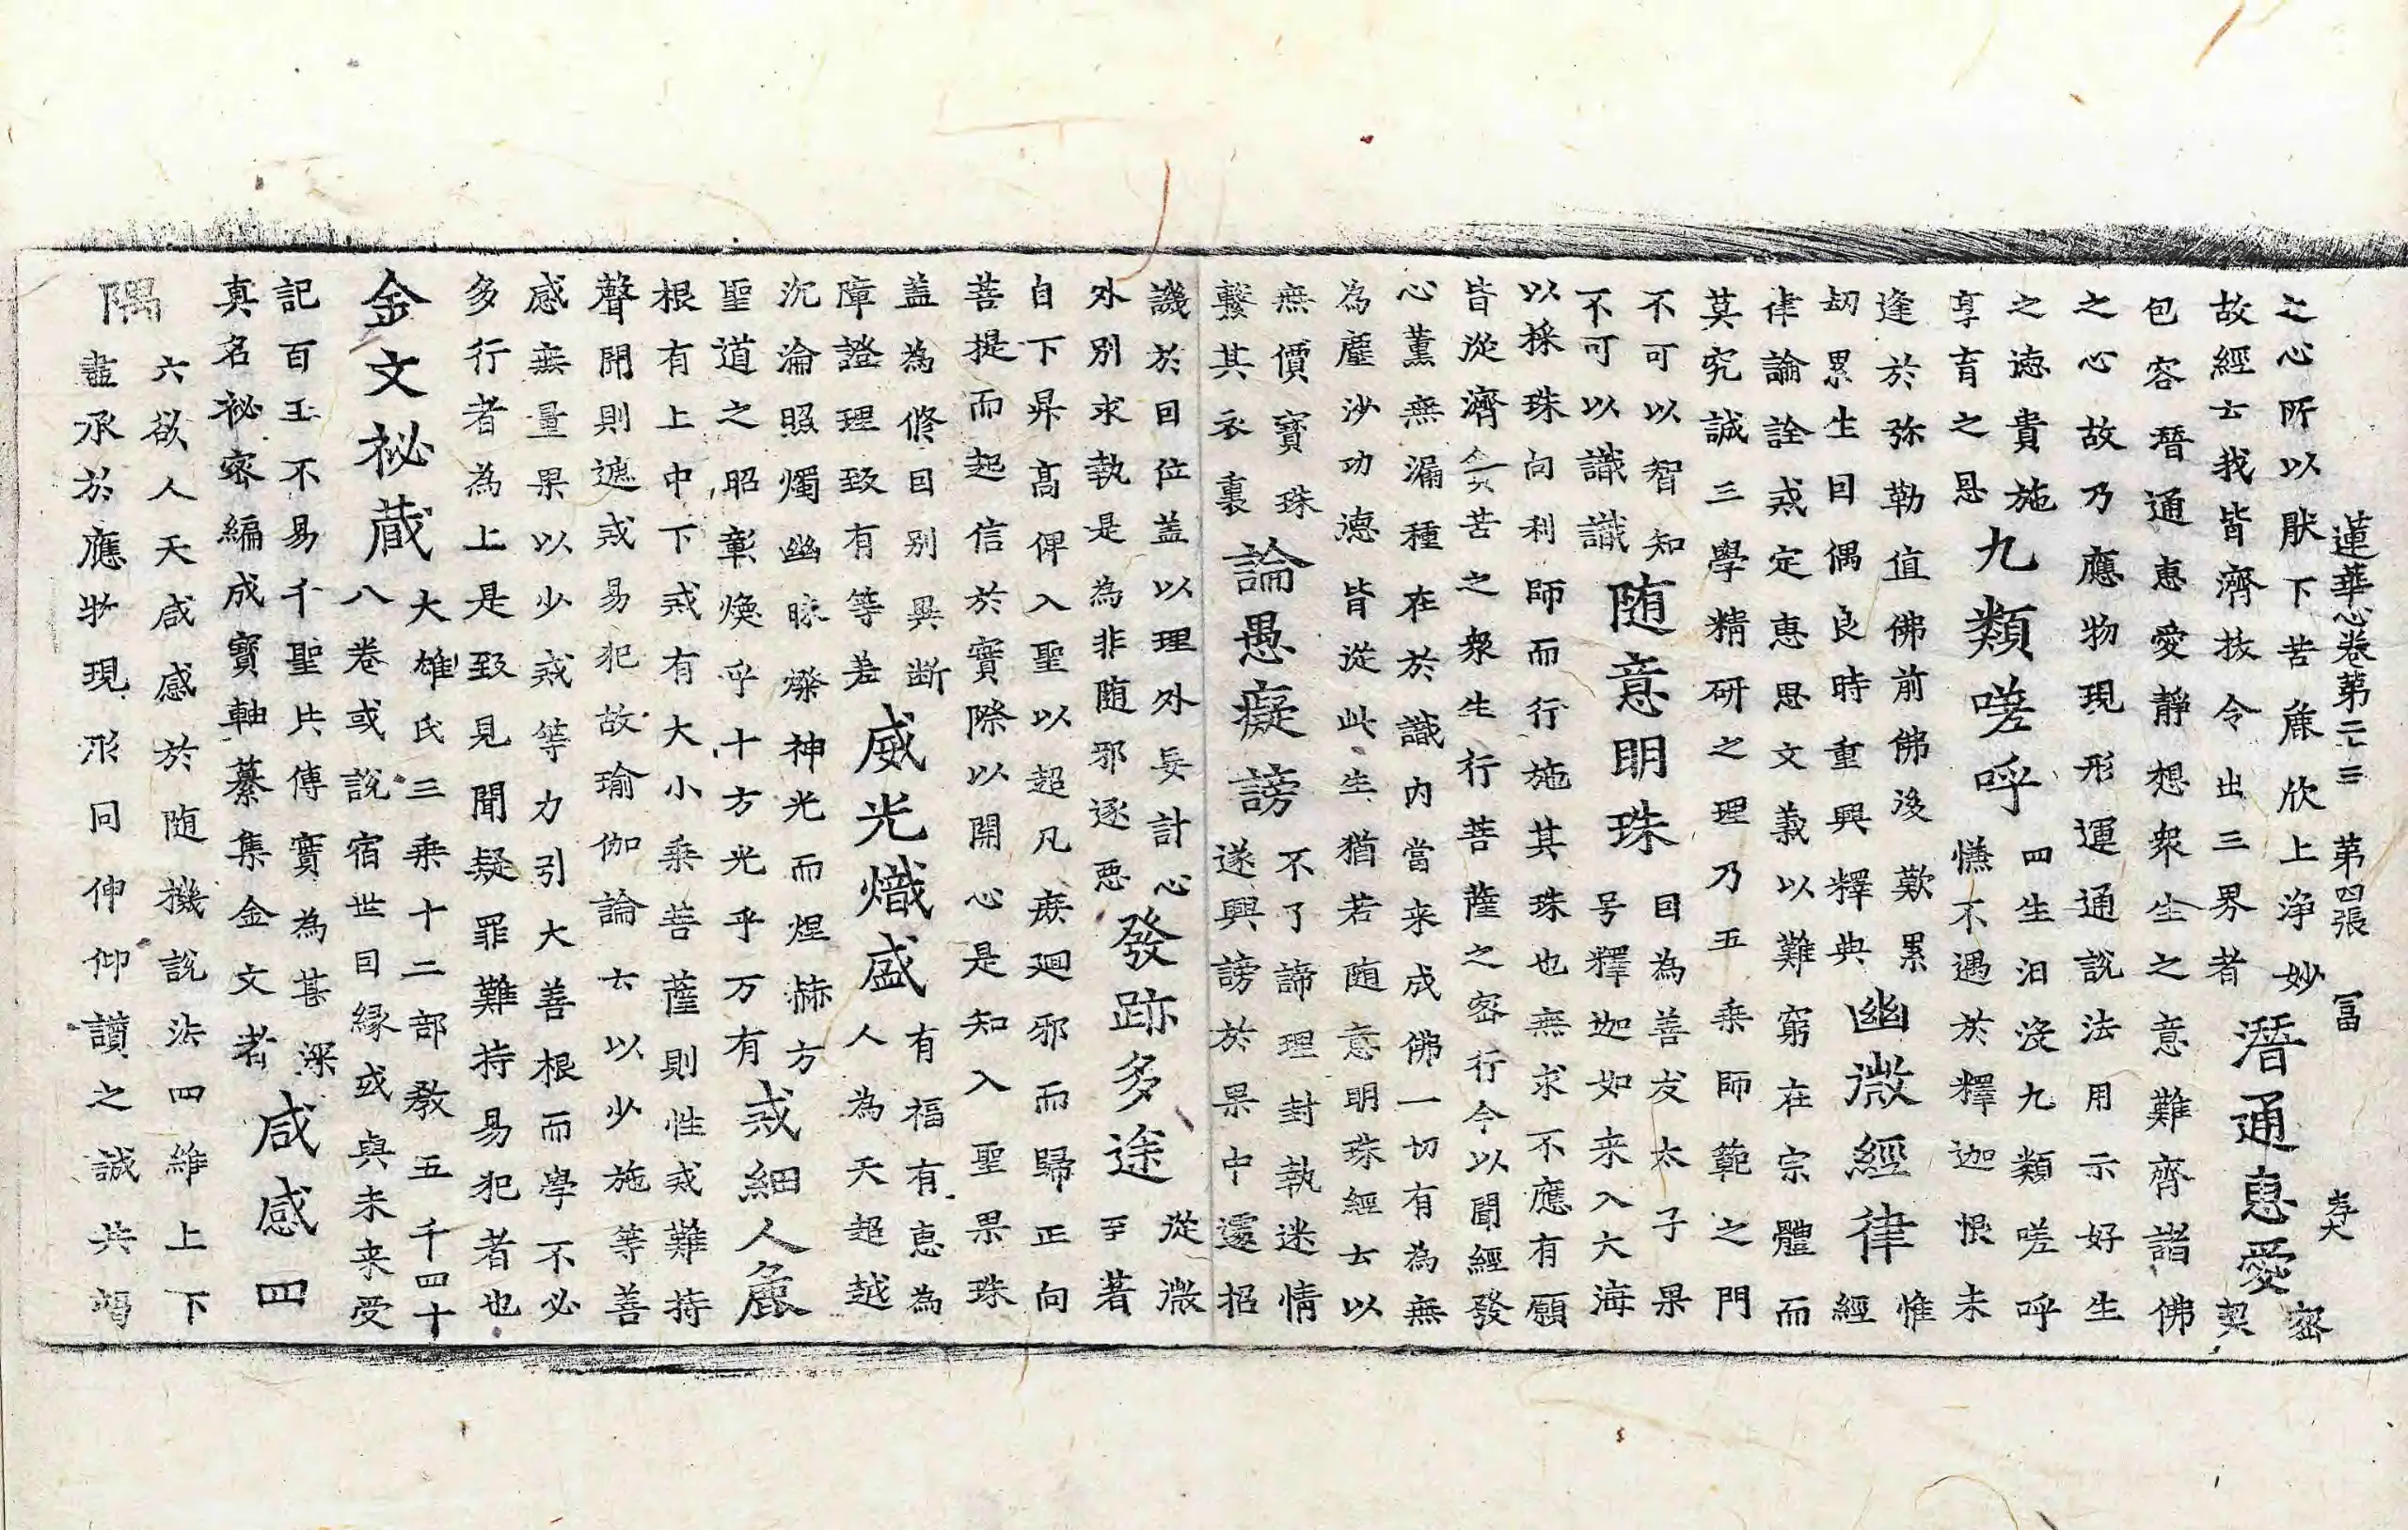 蓮華心卷第二十三 第四張 冨 孝大
之心所以猒下苦麁欣上淨妙
故經云我皆濟拔令出三界者
潛通惠愛
密包容潛通惠愛靜想衆生之意難齊諸佛
契之心故乃應物現形運通說法用示好生
之德貴施
享育之恩
九類嗟呼
四生汩没九類嗟呼
憮不遇於釋迦恨未
逢於弥勒值佛前佛後歎累
劫累生因偶良時重興釋典
幽微經律
惟
經
律論詮戒定惠思文義以難窮在宗體而
莫究誠三學精研之理乃五乘師範之門
不可以智知
不可以識識
随意明珠
因為善友太子果
号釋迦如来入大海
以採珠向利師而行施其珠也無求不應有願
皆從濟貧苦之衆生行菩薩之密行今以聞經發
心薰無漏種在於識内當来成佛一切有為無
為塵沙功德皆從此生猶若随意明珠經云以
無價寳珠
繫其衣裏
論愚癡謗
不了諦理封執迷情
遂興謗於果中還招
譏於因位盖以理外妄計心
外別求執是為非随邪逐惡
發跡多途
從微
至著
自下昇高俾入聖以超凡庶廻邪而歸正向
菩提而起信於實際以開心是知入聖果珠
盖為修因別異斷
障證理致有等差
威光熾盛
有福有惠為
人為天超越
沉淪照燭幽昧爍神光而煌赫方
聖道之昭彰煥乎十方光乎万有
戒細人麁
根有上中下戒有大小乘菩薩則性戒難持
聲聞則遮戒易犯故瑜伽論云以少施等善
感無量果以少戒等力引大善根而學不必
多行者為上是致見聞疑罪難持易犯者也
金文祕蔵
大雄氏三乘十二部教五千四十
八卷或說宿世因緣或與未来受
記百王不易千聖共傳實為甚深
真名祕密編成寳軸纂集金文者
咸感四
隅
六欲人天咸感於随機說法四維上下
盡承於應物現形同伸仰讚之誠共竭